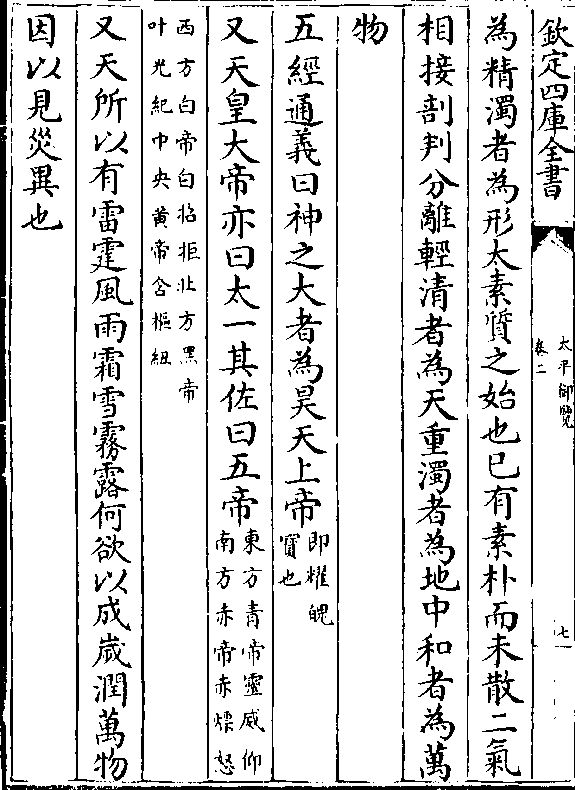 欽定四庫全書
太平御覽
卷二
七
為精濁者為形太素質之始也已有素朴而未散二氣
相接剖判分離輕清者為天重濁者為地中和者為萬
物
五經通義曰神之大者為昊天上帝即耀魄
寳也
又天皇大帝亦曰太一其佐曰五帝東方青帝靈威仰
南方赤帝赤熛怒
西方白帝白招拒北方黑帝
叶光紀中央黄帝含樞紐
又天所以有雷霆風雨霜雪霧露何欲以成嵗潤萬物
因以見災異也